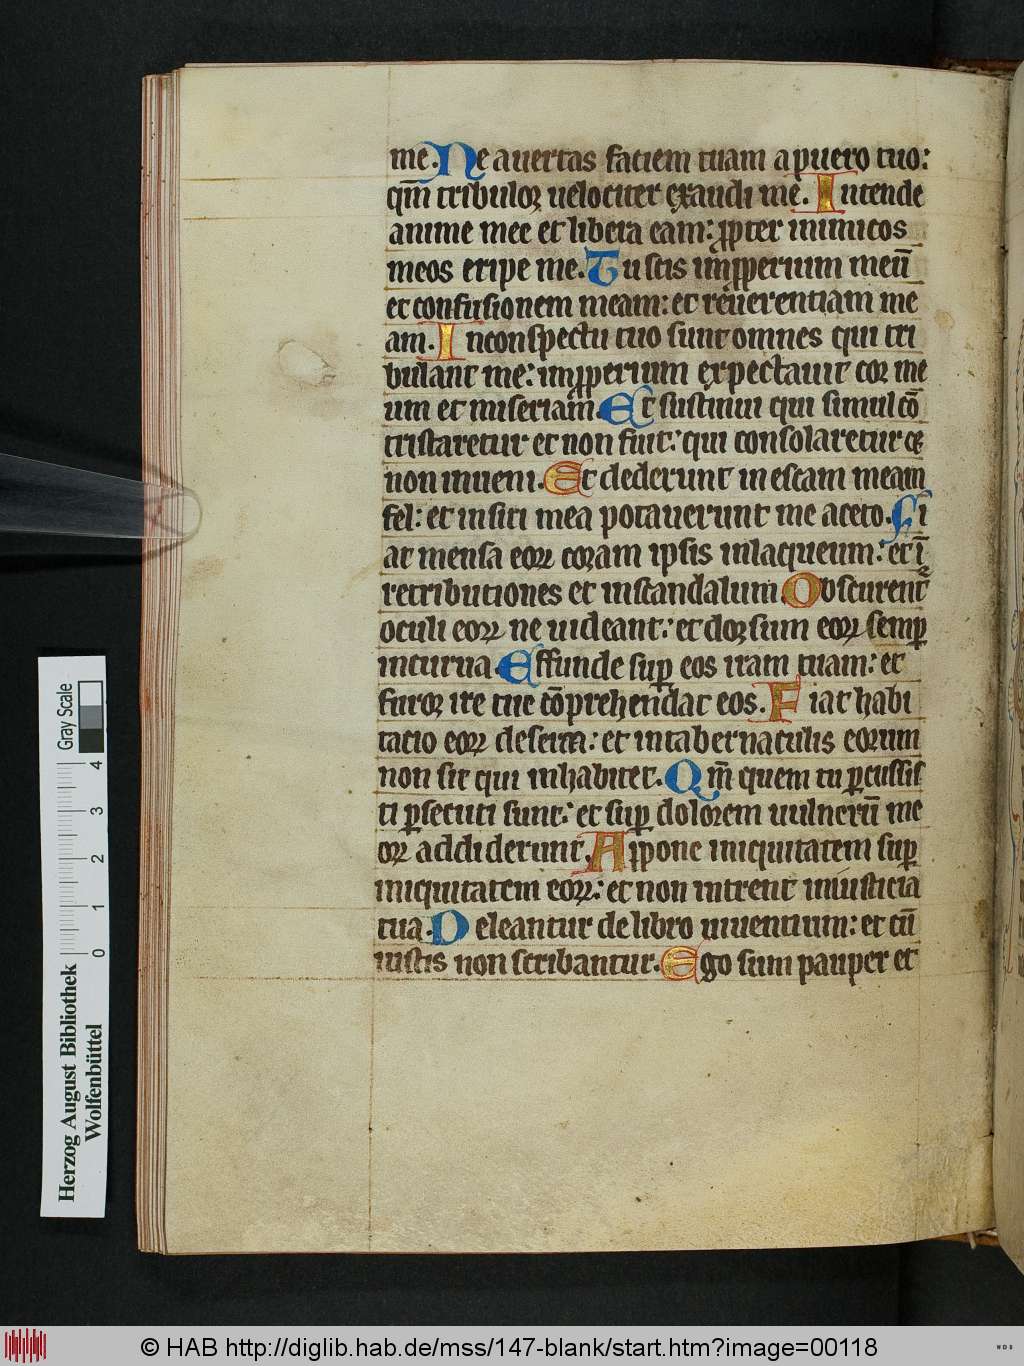 me. Ne auertas faciem tuam a puero tuo:
qm̄ tribulor uelociter exaudi me. Intende
anime mee et libera eam: ꝓpter inimicos
meos eripe me. Tu scis imꝓperium meū
et confusionem meam: et reuerentiam me
am. In conspectu tuo sunt omnes qui tri
bulant me: imꝓperium expectauit cor me
um et miseriam. Et sustinui qui simul cō
tristaretur et non fuit: qui consolaretur ⁊
non inueni. Et dederunt in escam meam
fel: et in siti mea potauerunt me aceto. Fi
at mensa eoꝝ coram ipsis in laqueum: et ī
retributiones et in scandalum. Obscurent᷑
oculi eoꝝ ne uideant: et dorsum eoꝝ semꝑ
incurua. Effunde suꝑ eos iram tuam: et
furor ire tue cōprehendat eos. Fiat habi
tacio eoꝝ deserta: et in tabernaculis eorum
non sit qui inhabitet. Qm̄ quem tu ꝑcussis
ti ꝑsecuti sunt: et suꝑ dolorem uulnerū me
oꝝ addiderunt. Appone iniquitatem suꝑ
iniquitatem eoꝝ: et non intrent in iusticia
tua. Deleantur de libro uiuentium: et cū
iustis non scribantur. Ego sum pauper et
Gray Scale
4 3 2 1 0
Herzog August Bibliothek
Wolfenbüttel
© HAB http://diglib.hab.de/mss/147-blank/start.htm?image=00118